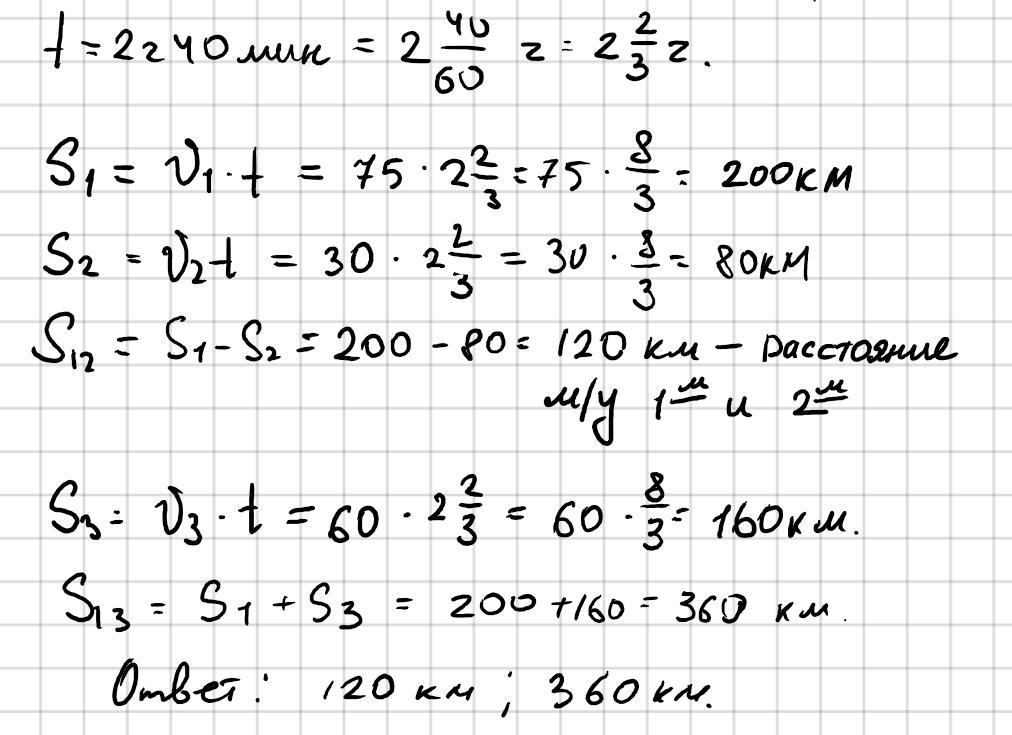 t = 2г 40 мин = 2 40/60 г = 2 2/3 г.
S₁ = v₁ · t = 75 · 2 2/3 = 75 · 8/3 = 200 км
S₂ = v₂ t = 30 · 2 2/3 = 30 · 8/3 = 80 км
S₁₂ = S₁ - S₂ = 200 - 80 = 120 км – расстояние
м/у 1ᵐ и 2ᵐ
S₃ = v₃ · t = 60 · 2 2/3 = 60 · 8/3 = 160 км.
S₁₃ = S₁ + S₃ = 200 + 160 = 360 км.
Ответ: 120 км ; 360 км.